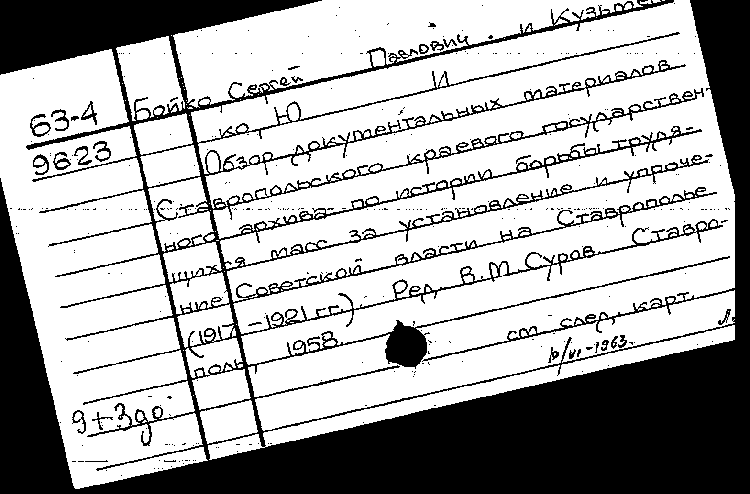 63-4 Бойко, Сергей Павлович. и Кузьмен
9623 ко, Ю И
Обзор документальных материалов
Ставропольского краевого государствен-
ного архива по истории борьбы трудя-
щихся масс за установление и упроче-
ние Советской власти на Ставрополье
(1917-1921 гг.). Ред. В.М. Суров. Ставро-
поль, 1958.
см след. карт.
9+3до.
10/VI-1963.